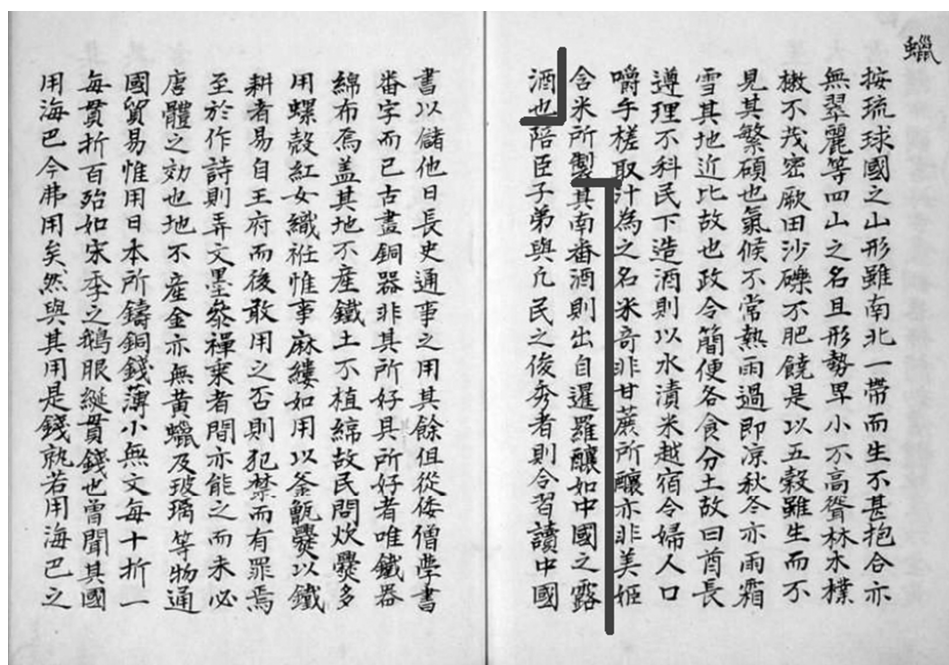 蠟
按琉球國之山形雖南北一帶而生不甚抱合亦
無翠麗等四山之名且形勢卑小不高聳林木樸
樕不茂密厥田沙礫不肥饒是以五穀雖生而不
見其繁碩也氣候不常熱雨過即凉秋冬亦雨霜
雪其地近比故也政令簡便各食分土故曰酋長
遵理不科民下造酒則以水漬米越宿令婦人口
嚼手槎取汁為之名米哥非甘蔗所釀亦非美姬
含米所製其南番酒則出自暹羅釀如中國之露
酒也陪臣子弟與凡民之俊秀者則令習讀中國
書以儲他日長史通事之用其餘但從倭僧學書
番字而已古畫銅器非其所好其所好者唯鐵器
綿布焉盖其地不產鐵土不植綿故民間炊爨多
用螺殼紅女織袵惟事麻縷如用以釜甑爨以鐵
耕者易自王府而後敢用之否則犯禁而有罪焉
至於作詩則弄文墨參禪乘者間亦能之而未必
唐體之効也地不產金亦無黃蠟及玻璃等物通
國貿易惟用日本所鑄銅錢薄小無文每十折一
每貫折百殆如宋季之鵝眼綖貫錢也曾聞其國
用海巴今弗用矣然與其用是錢孰若用海巴之